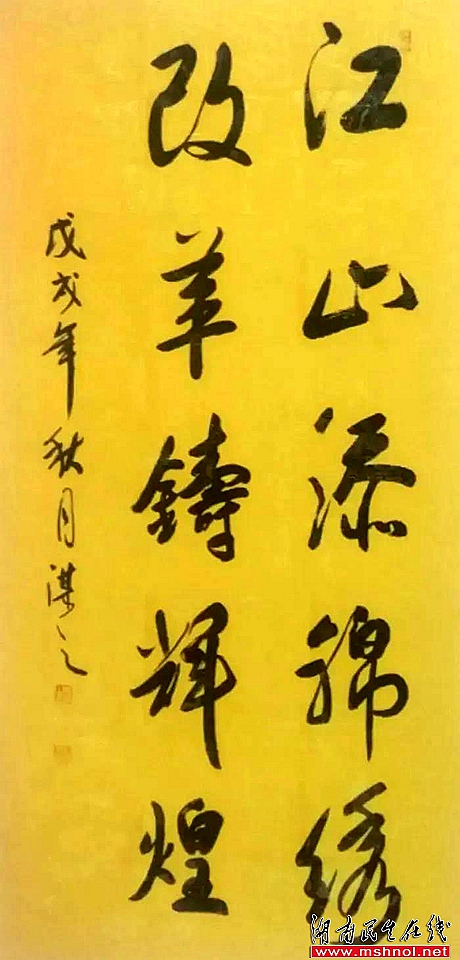 江山添锦绣
改革鑄辉煌
戊戌年秋月湛之
湖南民生在线
www.mshnol.net